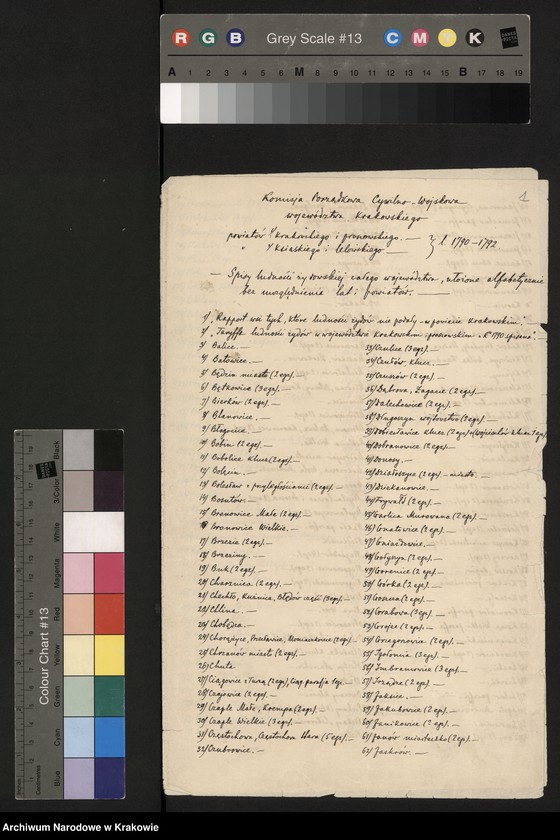 R G B Grey Scale #13 C M Y K
A 1 2 3 4 5 6 M 8 9 10 11 12 13 14 15 B 17 18 19
1
Komisja Porządkowa Cywilno-Wojskowa
województwa Krakowskiego
powiatów: krakowskiego i proszowskiego. —
" ksiaskiego i lelowskiego — } l. 1790-1792
— Spisy ludności żydowskiej całego województwa, ułożone alfabetycznie
bez uwzględnienia lat i powiatów. —
1/ „Rapport wsi tych, które ludności żydów nie podały w powiecie Krakowskim". —
2/ „Taryffa ludności żydów w województwie Krakowskim i proszowskim R 1790 spisana".
3/ Balice. —
4/ Batowice. —
5/ Będzin miasto (2 egz). —
6/ Bętkowice (3 egz). —
7/ Bierków (2 egz). —
8/ Blanowice. —
9/ Błogocice. —
10/ Bobin (2 egz). —
11/ Bobolice Klucz (2 egz). —
12/ Bolęcin. —
13/ Bolesław z przyległościami (2 egz). —
14/ Bosutów. —
15/ Bronowice Małe (2 egz). —
16/ Bronowice Wielkie. —
17/ Brzezie (2 egz). —
18/ Brzeziny. —
19/ Buk (2 egz). —
20/ Charsznica (2 egz). —
21/ Chechło, Kuźnica, Błędów część (3 egz). —
22/ Chlina. —
23/ Chobędza. —
24/ Chorążyce, (2 egz). —
25/ Chrzanów miasto (2 egz). —
26/ Chuta
27/ (2 egz),
28/ Czajowice (2 egz). —
29/ Czaple Małe, (2 egz). —
30/ Czaple Wielkie (3 egz). —
31/ Częstochowa, Częstochowa Stara (5 egz). —
32/ Czubrowice. —
33/ Czulice (3 egz). —
34/ klucz. —
35/ (2 egz). —
36/ Dąbrowa, Zagacie (2 egz). —
37/ Dalechowice (2 egz). —
38/ Długoszyn wójtostwo (2 egz). —
39/ klucz (2 egz)
40/ Dobranowice (2 egz). —
41/ Donosy. —
42/ Działoszyce (2 egz). — miasto. —
43/ Dziekanowice. —
44/ (2 egz). —
45/ Garlica Murowana (2 egz). —
46/ Gnatowice (2 egz). —
47/ Gniazdowice. —
48/ Gołyszyn (2 egz). —
49/ Gorenice (2 egz). —
50/ Górka (2 egz). —
51/ (2 egz). —
52/ Grabowa (3 egz). —
53/ Grojec (2 egz). —
54/ Gregorzowice (2 egz). —
55/ Igołomia (3 egz). —
56/ Imbramowice (3 egz). —
57/ Irządze (2 egz). —
58/ Jaksice. —
59/ Jakubowice (2 egz). —
60/ Janikowice (2 egz). —
61/ Janów miasteczko (2 egz). —
62/
Colour Chart #13
Blue Cyan Green Yellow Red Magenta White 3/Color Black
Inches Centimetres
Archiwum Narodowe w Krakowie